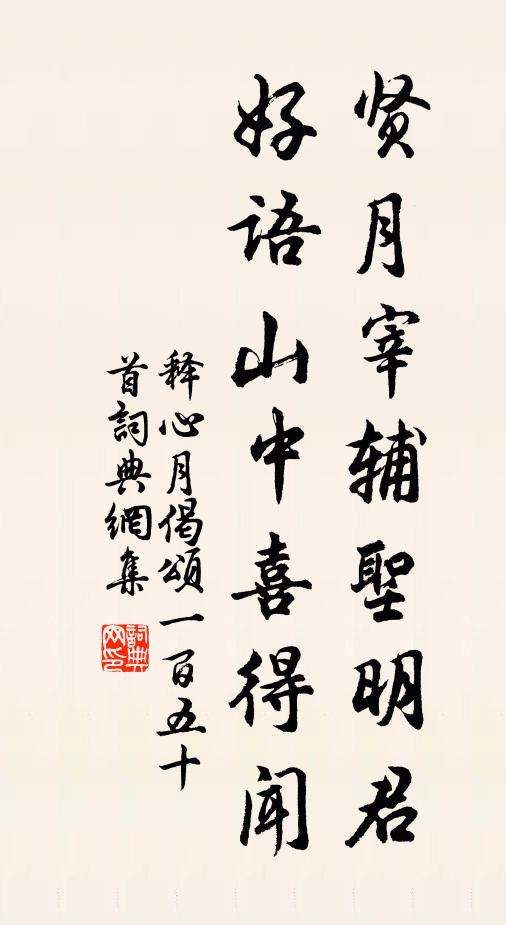 贤月宰辅聖明君
好语山中喜得闻
释心月偈颂一百五十
首詞典網集
詞典
网印